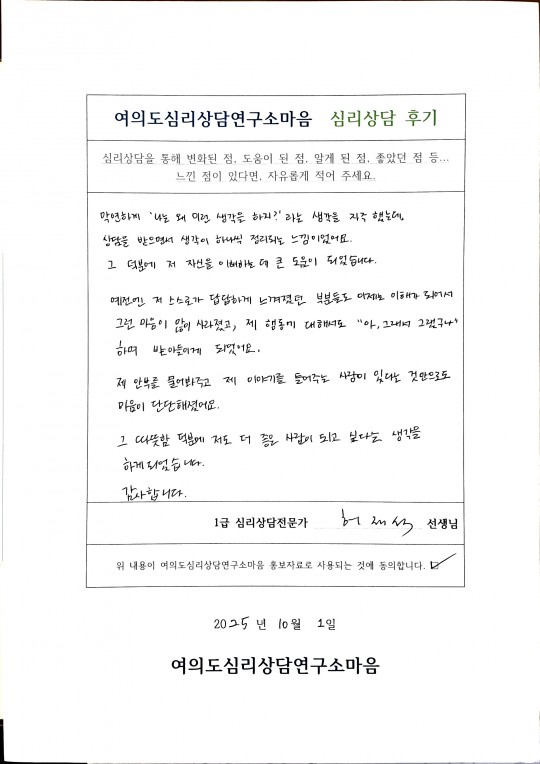 여의도심리상담연구소마음 심리상담 후기
심리상담을 통해 변화된 점, 도움이 된 점, 알게 된 점, 좋았던 점 등...
느낀 점이 있다면, 자유롭게 적어 주세요.
막연하게 '나는 왜 이런 생각을 하지?' 라는 생각을 자주 했는데,
상담을 받으면서 생각이 하나씩 정리되는 느낌이었어요.
그 덕분에 저 자신을 이해하는 데 큰 도움이 되었습니다.
예전에는 저 스스로가 답답하게 느껴졌던 부분들도 이제는 이해가 되어서
그런 마음이 많이 사라졌고, 제 행동에 대해서도 "아, 그래서 그랬구나"
하며 받아들이게 되었어요.
제 안부를 물어봐주고 제 이야기를 들어주는 사람이 있다는 것만으로도
마음이 단단해졌어요.
그 따뜻함 덕분에 저도 더 좋은 사람이 되고 싶다는 생각을
하게되었습니다.
감사합니다.
1급 심리상담전문가 허재석 선생님
위 내용이 여의도심리상담연구소마음 홍보자료로 사용되는 것에 동의합니다.
2025 년 10 월 1 일
여의도심리상담연구소마음